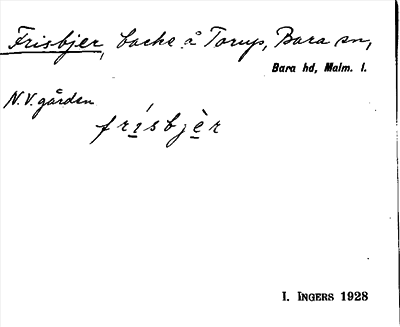 Frisbjer, backe å Torups, Bara sn,
Bara hd, Malm. l.
N.V. gården
frísbjèr
I. INGERS 1928